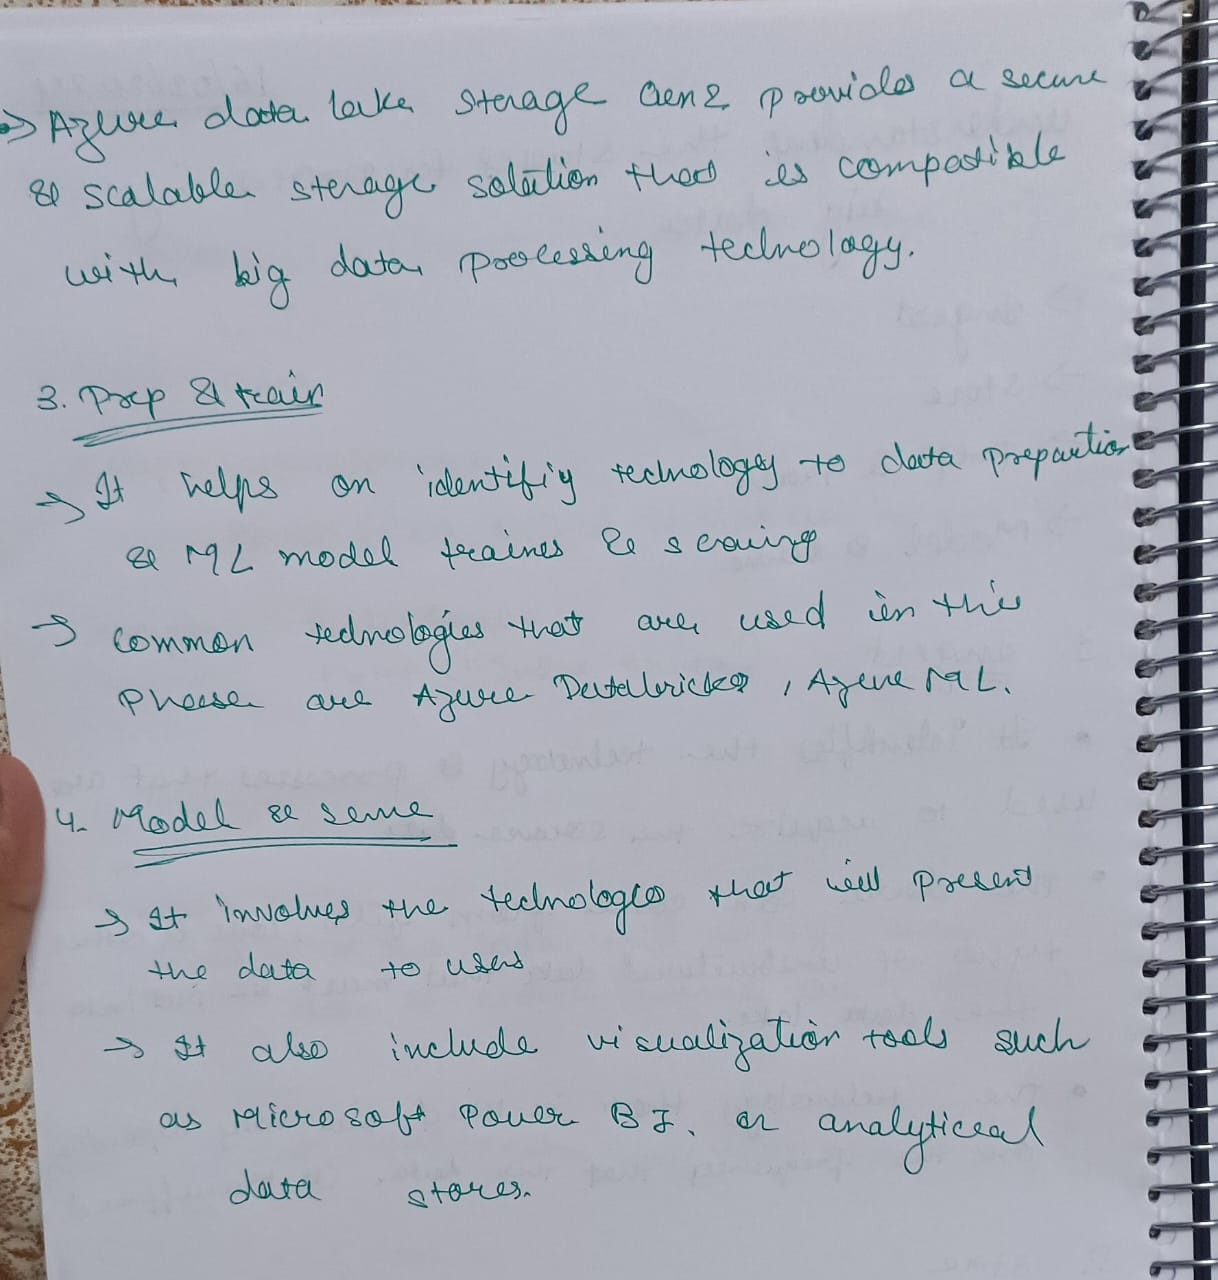 → Azure data lake storage Gen2 provides a secure
& scalable storage solution that is compatible
with big data processing technology.
3. Prep & train
→ It helps on identifiy technology to data prepartion
& ML model traines & serving
→ common technologies that are used in this
Phase are Azure Databricks, Azure ML.
4. Model & serve
→ It involves the technologies that will present
the data to users
→ It also include visualization tools such
as Microsoft Power BI. or analyticcal
data stores.